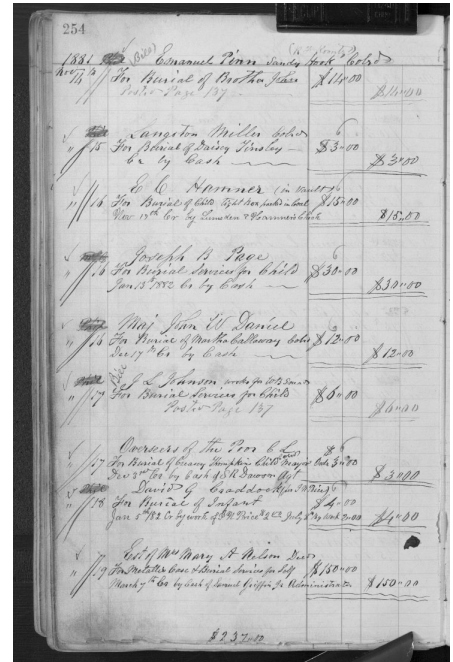 254
1881 (Bill) Emanuel Penn Sandy Hook Cold
Nov 14 For Burial of Brother Jesse $14"00
Posted Page 137 $14"00
Langston Miller Cold
" 15 For Burial of Daisey Kinsley $3"00
Cr by Cash $3"00
E C Hamner (in vault)
" 16 For Burial of Child $15"00
Nov 18th Cr by Lumsden & Hamner's Check $15"00
Joseph B Page
" 16 For Burial Services for Child $30"00
Jan 13th 1882 Cr by Cash $30"00
Maj John W Daniel
" 16 For Burial of Martha Callaway Cold $12"00
Dec 17th Cr by Cash $12"00
Bill J L Johnson works for
" 17 For Burial Services for Child $6"00
Posted Page 137 $6"00
Overseers of the Poor C L
" 17 For Burial of Child Mayor Order 3"00
Dec 3rd Cr by Cash of Agt $3"00
David G Craddock
" 18 For Burial of Infant $4"00
Jan 5th /82 Cr by work of July by work $4"00
Est of Mrs Mary A Nelson Decd
" 19 For Metallic Case & Burial Services for Self $150"00
March 7th Cr by Cash of Samuel Griffin Jr Administrator $150"00
$237"00